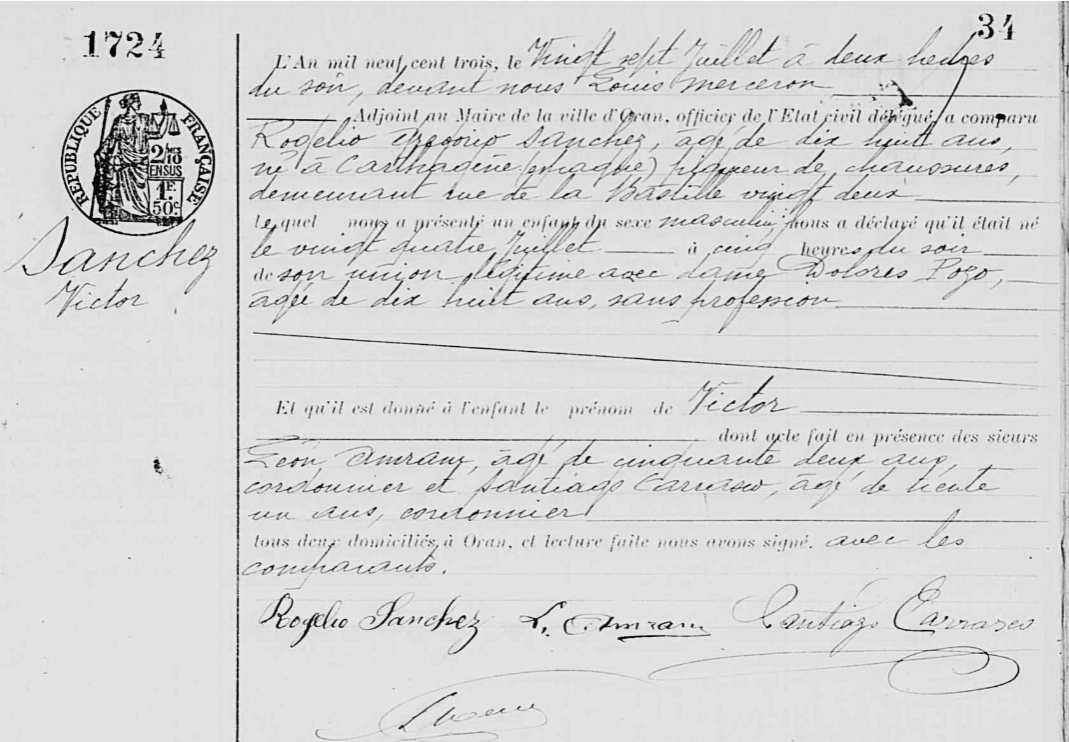 1724
34
RÉPUBLIQUE FRANÇAISE
2/10
EN SUS
1F.
50c
Sanchez
Victor
L'An mil neuf cent trois, le Vingt sept Juillet à deux heures
du soir, devant nous Louis Merceron
Adjoint au Maire de la ville d'Oran, officier de l'Etat civil délégué, a comparu
Rogelio Gregorio Sanchez, âgé de dix huit ans,
né à Carthagène (Espagne) piqueur de chaussures,
demeurant rue de la Bastille vingt deux
lequel nous a présenté un enfant du sexe masculin, nous a déclaré qu'il était né
le vingt quatre Juillet à cinq heures du soir
de son union légitime avec dame Dolores Pozo,
âgée de dix huit ans, sans profession
Et qu'il est donné à l'enfant le prénom de Victor
dont acte fait en présence des sieurs
Léon Amram, âgé de cinquante deux ans,
cordonnier et Santiago Carrasco, âgé de trente
un ans, cordonnier
tous deux domiciliés à Oran, et lecture faite nous avons signé. avec les
comparants.
Rogelio Sanchez L. Amram Santiágo Carrasco